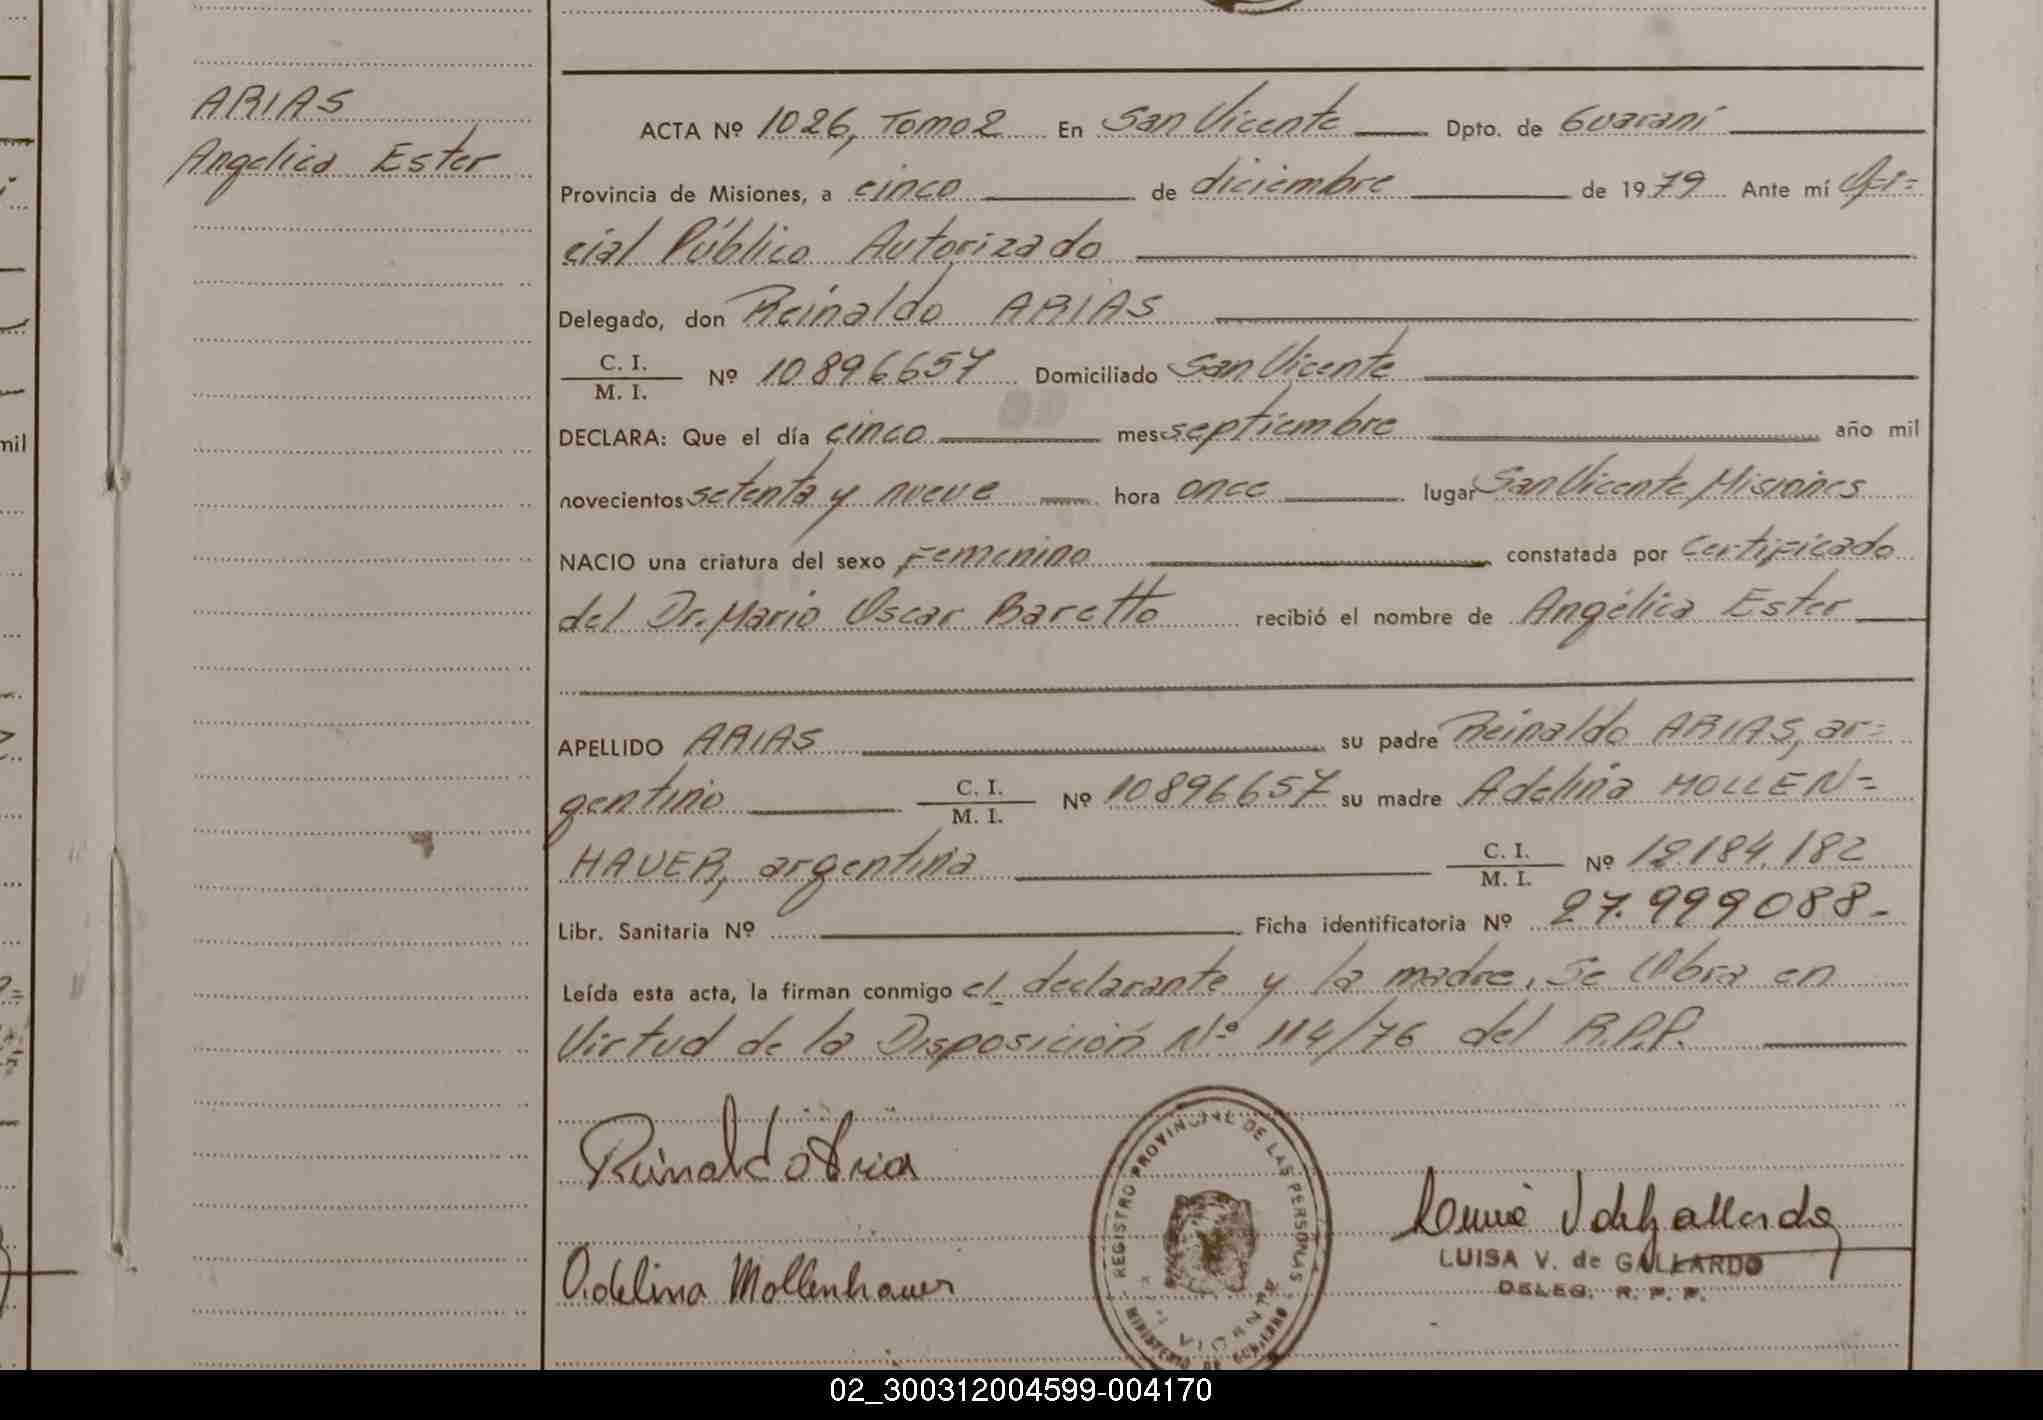 ARIAS
Angelica Ester
ACTA Nº 1026, Tomo 2 En San Vicente Dpto. de Guaraní
Provincia de Misiones, a cinco de diciembre de 1979 Ante mí Ofi=
cial Público Autorizado
Delegado, don Reinaldo ARIAS
C. I.
M. I. Nº 10896657 Domiciliado San Vicente
DECLARA: Que el día cinco mes septiembre año mil
novecientos setenta y nueve hora once lugar San Vicente Misiones
NACIO una criatura del sexo Femenino constatada por Certificado
del Dr. Mario Oscar Baretto recibió el nombre de Angélica Ester
APELLIDO ARIAS su padre Reinaldo ARIAS, ar=
gentino C. I.
M. I. Nº 10896657 su madre Adelina MOLLEN=
HAUER, argentina C. I.
M. I. Nº 12.184.182
Libr. Sanitaria Nº Ficha identificatoria Nº 27.999088-
Leída esta acta, la firman conmigo el declarante y la madre, Se Obra en
Virtud de la Disposición Nº 114/76 del R.P.P.
Reinaldo Aria
Adelina Mollenhauer
REGISTRO PROVINCIAL DE LAS PERSONAS
MINISTERIO DE GOBIERNO
Luisa V de Gallardo
LUISA V. de GALLARDO
DELEG. R. P. P.
mil
02_300312004599-004170